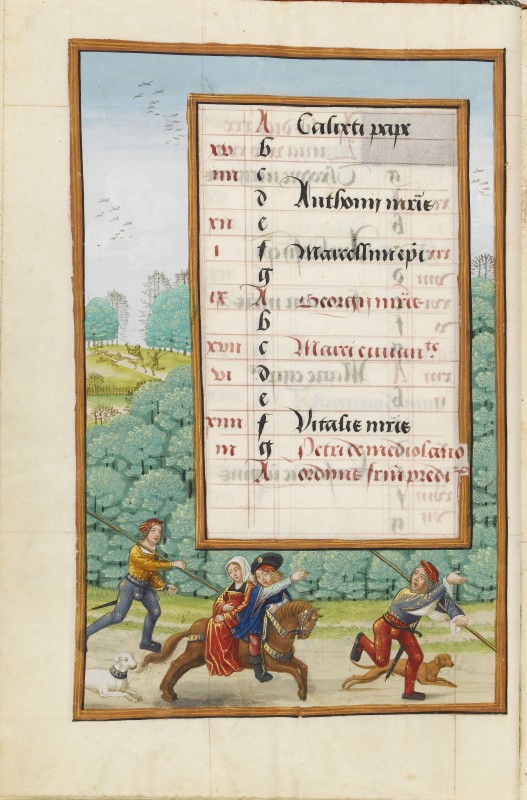 A Calixti pape
xv b
iiii c
d Anthonij mris
xii e
i f Marcellini epi
g
ix A Georgij mris
b
xvii c Marci euuan te
vi d
e
xiiii f Vitalis mris
iii g Petri de mediolano
A ordinis frum predi